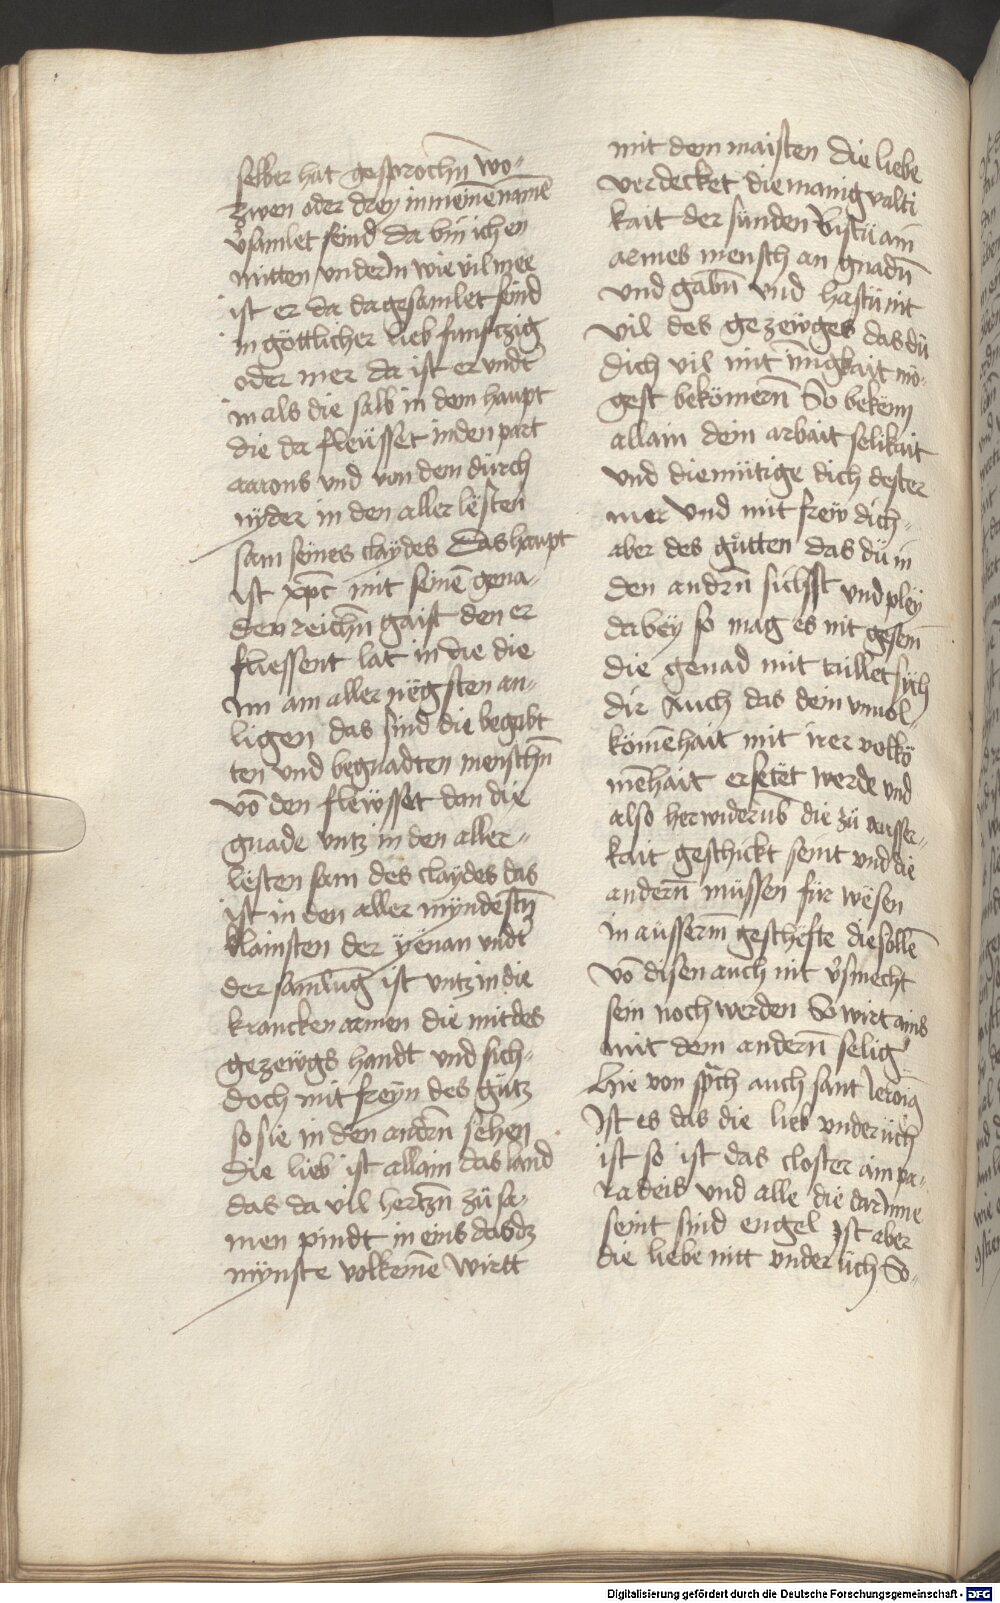 selber hat gesprochn̄ wo⸗
zwen oder drey in meinē namē
v̉samlet seind da bin ich en
mitten vnder Jn wie vil mer
ist er da da gesamlet seind
in göttlicher lieb funftzig
oder mer da ist er vndt̉
in als die salb in dem haupt
die da fleüsset in den part
aarons vnd von dem durch
nÿder in den aller lësten
sam seines claÿdes Das haupt
ist xp̄c mit seinē gena⸗
den reichn̄ gaist den er
fliessent lat in die die
im am aller nëgsten an⸗
ligen das sind die begabt
ten vnd begnadten menschn̄
vō den fleẅsset dan die
gnade vntz in den aller⸗
lësten sam des claÿdes das
ist in den aller mÿndestn̄
klainsten der ÿënan vndt̉
der samlūg ist vntz in die
krancken armen die mit des
gezewgs handt vnd sich⸗
doch mit freÿn des gůtz
so sie in den andrn̄ sehen
die lieb ist allain das land
das da vil hertzn̄ zů sa⸗
men pindt in eins das dz
mÿnste volkomē wirtt
mit dem maisten die liebe
verdecket die manig valti
kait der sünden Bistu ain
armes mensch an gnadn̄
vnd gabn̄ vnd hastu nit
vil des gezewges das dů
dich vil mit īnigkait mö⸗
gest bekömern̄ So bekëm
allain dein arbait selikait
vnd diemütige dich dester
mer vnd mit frew dich⸗
aber des gůtten das dů in
den andrn̄ sichsst vnd pleÿ
da beÿ so mag es nit gesein
die genad mit taillet sich
dir Auch das dein vnuol⸗
kömēhait mit irer volkö
mēhait ersetzt werde vnd
also herwiderūb die zů ausser⸗
kait geschickt seint vnd die
andern̄ müssen für wësen
in aüsserm̄ geschëfte die sollē
vō disen auch nit v̉smecht
sein noch werden So wirt ains
mit dem andern̄ selig
Hie von spͣch auch sant Jeronim̄
Ist es das die lieb vnder üch
ist so ist das closter ain pa⸗
radeis vnd alle die dar Jnne
seint sind engel Ist aber
die liebe nitt vnder üch So⸗
Digitalisierung gefördert durch die Deutsche Forschungsgemeinschaft - DFG